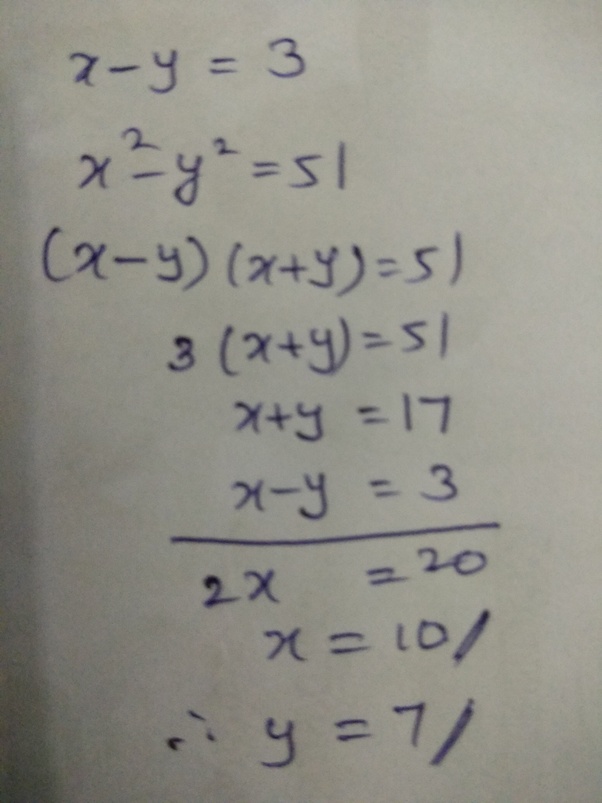 x-y = 3
x²-y² = 51
(x-y) (x+y) = 51
3 (x+y) = 51
x+y = 17
x-y = 3
2x = 20
x = 10/
∴ y = 7/